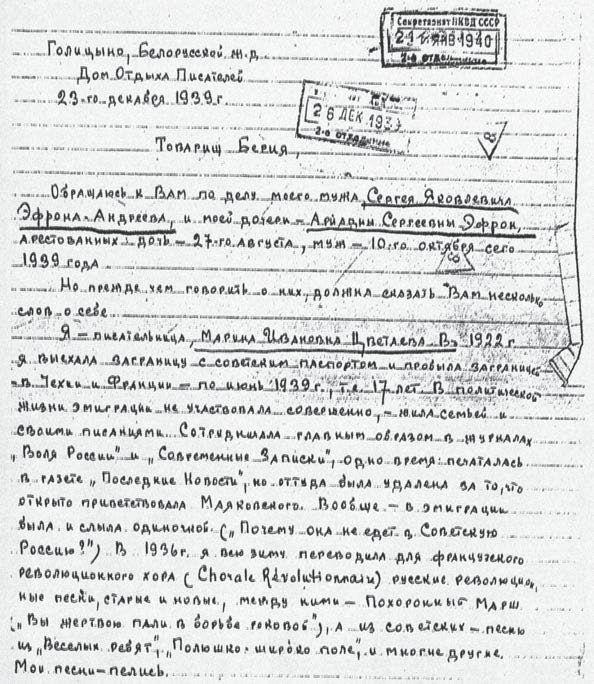 Секретариат НКВД СССР
21 ЯНВ 1940
2-е отделение
Голицыно, Белорусской ж.д.
Дом Отдыха Писателей
23-го декабря 1939 г
26 ДЕК 1939
2-е отделение
Товарищ Берия,
Обращаюсь к Вам по делу моего мужа, Сергея Яковлевича
Эфрона-Андреева, и моей дочери – Ариадны Сергеевны Эфрон,
арестованных: дочь – 27-го августа, муж – 10-го октября сего
1939 года
Но прежде чем говорить о них, должна сказать Вам несколько
слов о себе
Я – писательница, Марина Ивановна Цветаева. В 1922 г
я выехала заграницу с советским паспортом и пробыла заграницей
– в Чехии и Франции – по июнь 1939 г., т.е. 17 лет. В политической
жизни эмиграции не участвовала совершенно, – жила семьей и
своими писаниями. Сотрудничала главным образом в журналах
„Воля России" и „Современные Записки", одно время печаталась
в газете „Последние Новости", но оттуда была удалена за то, что
открыто приветствовала Маяковского. Вообще – в эмиграции
была и слыла одиночкой. („Почему она не едет в Советскую
Россию?") В 1936 г. я всю зиму переводила для французского
революционного хора (Chorale Révolutionnaire) русские революцион-
ные песни, старые и новые, между ними – Похоронный Марш
(„Вы жертвою пали в борьбе роковой"), а из советских – песню
из „Веселых ребят", „Полюшко – широко поле", и многие другие.
Мои песни – пелись.